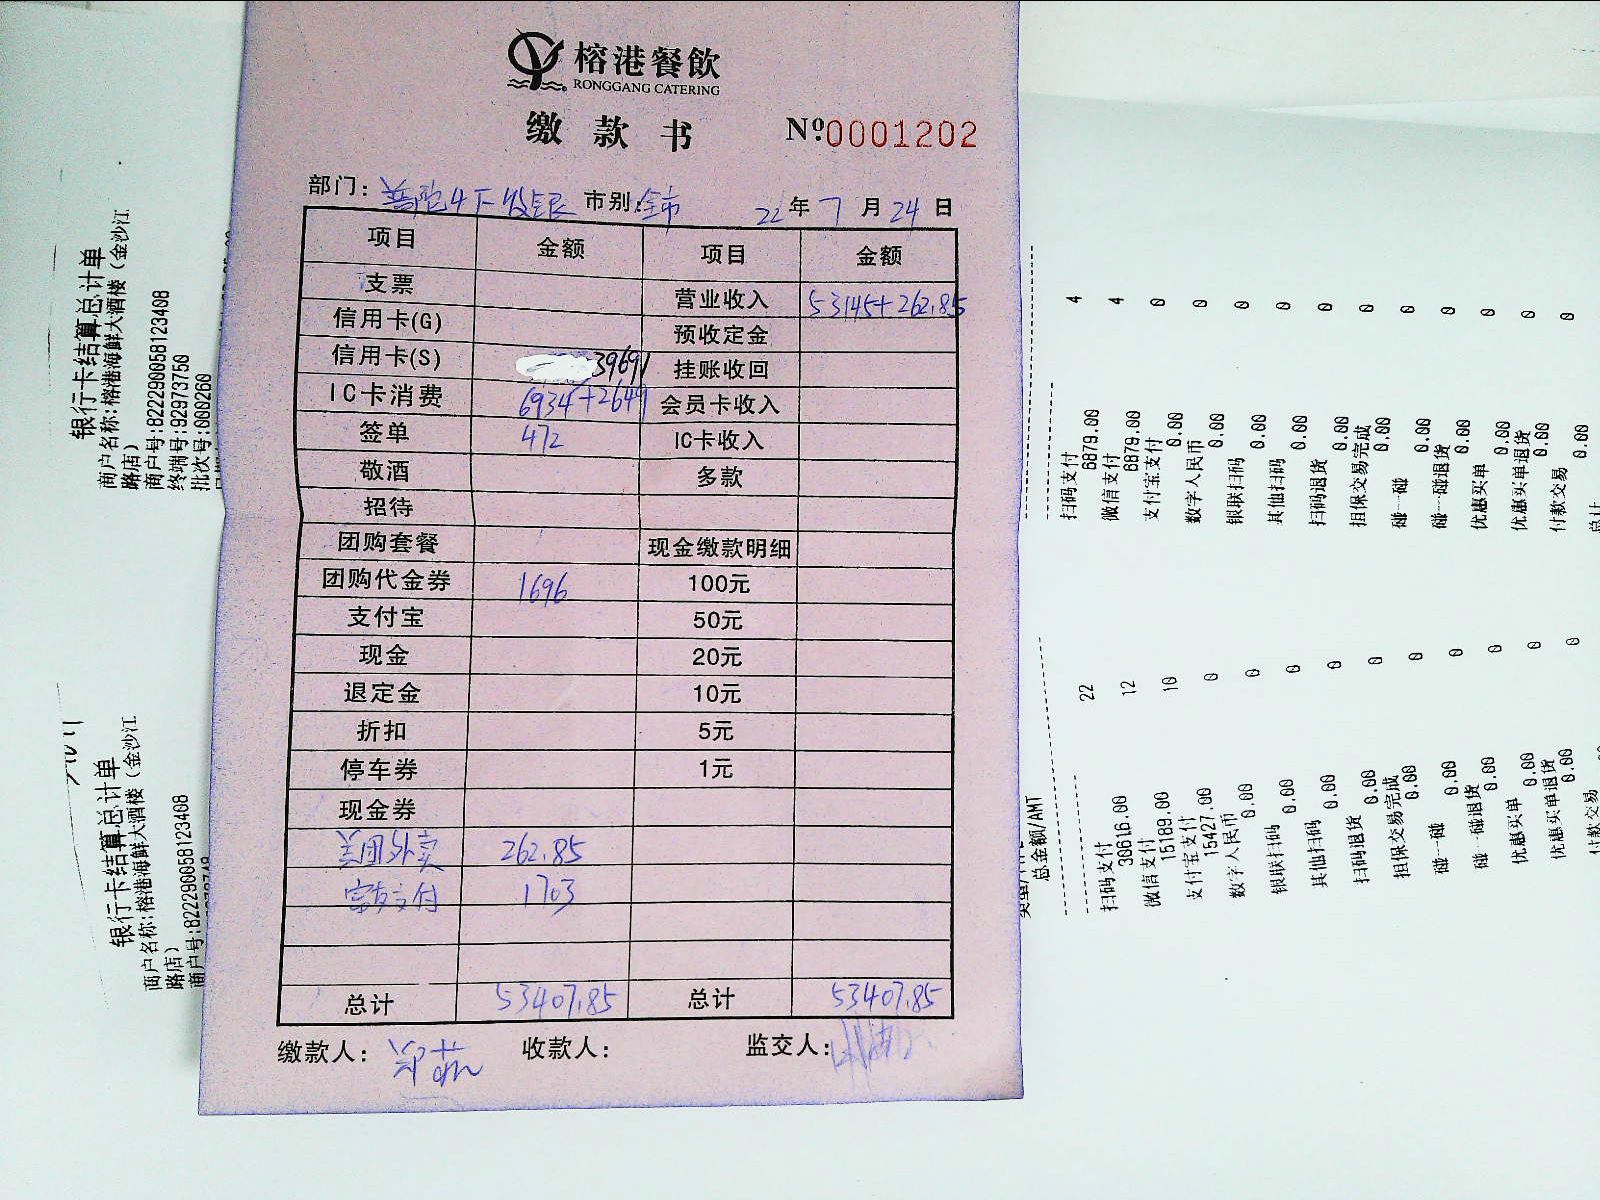 榕港餐飲
RONGGANG CATERING
缴款书 Nº0001202
部门: 市别:全市 22年7月24日
项目 金额 项目 金额
支票 营业收入 53145+262.85
信用卡(G) 预收定金
信用卡(S) 39691 挂账收回
IC卡消费 6934+2649 会员卡收入
签单 472 IC卡收入
敬酒 多款
招待
团购套餐 现金缴款明细
团购代金券 1696 100元
支付宝 50元
现金 20元
退定金 10元
折扣 5元
停车券 1元
现金券
美团外卖 262.85
支付 1703
总计 53407.85 总计 53407.85
缴款人: 收款人: 监交人:
银行卡结算总计单
商户名称:榕港海鲜大酒楼(金沙江
路店)
商户号:822290058123408
终端号:92973750
批次号:000260
银行卡结算总计单
商户名称:榕港海鲜大酒楼(金沙江
路店)
商户号:822290058123408
扫码支付 4
6879.00
微信支付 4
6879.00
支付宝支付 0
0.00
数字人民币 0
0.00
银联扫码 0
0.00
其他扫码 0
0.00
扫码退货 0
0.00
担保交易完成 0
0.00
碰一碰 0
0.00
碰一碰退货 0
0.00
优惠买单 0
0.00
优惠买单退货 0
0.00
付款交易 0
0.00
总计
总金额/AMT
扫码支付 22
30616.00
微信支付 12
15189.00
支付宝支付 10
15427.00
数字人民币 0
0.00
银联扫码 0
0.00
其他扫码 0
0.00
扫码退货 0
0.00
担保交易完成 0
0.00
碰一碰 0
0.00
碰一碰退货 0
0.00
优惠买单 0
0.00
优惠买单退货 0
0.00
付款交易 0